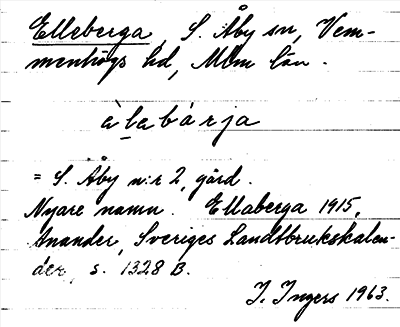 Elleberga, S. Åby sn, Vem-
menhögs hd, Mlm län.
àlebárja
= S. Åby n:r 2, gård.
Nyare namn. Ellaberga 1915,
Anander, Sveriges Landtbrukskalen-
der, s. 1328 B.
I. Ingers 1963.